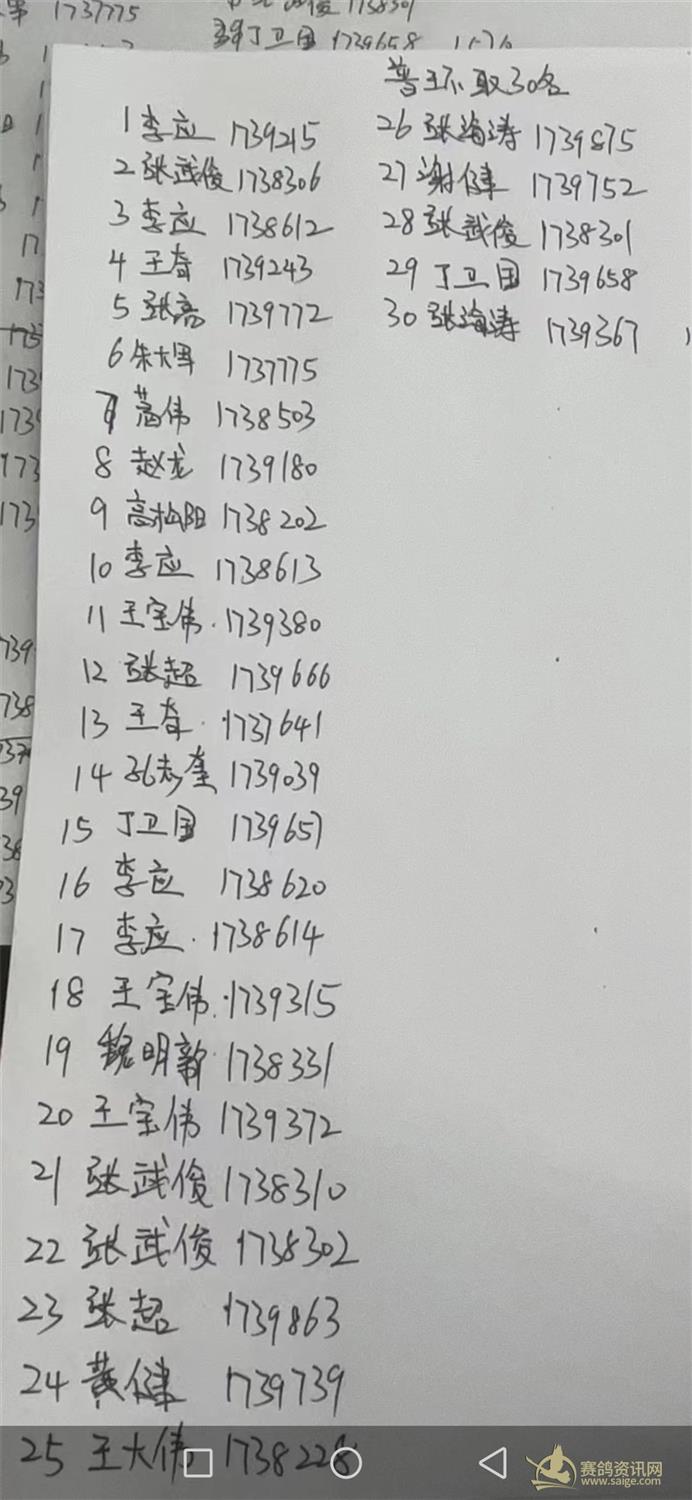 1737775
1739658
普环取30名
1 李应 1739215
2 张武俊 1738306
3 李应 1738612
4 王春 1739243
5 张亮 1739772
6 朱大军 1737775
7 葛伟 1738503
8 赵龙 1739180
9 高松阳 1738202
10 李应 1738613
11 王宝伟 1739380
12 张超 1739666
13 王春 1737641
14 孔志奎 1739039
15 丁卫国 1739657
16 李应 1738620
17 李应 1738614
18 王宝伟 1739315
19 魏明新 1738331
20 王宝伟 1739372
21 张武俊 1738310
22 张武俊 1738302
23 张超 1739863
24 黄健 1739739
25 王大伟 1738228
26 张海涛 1739875
27 谢健 1739752
28 张武俊 1738301
29 丁卫国 1739658
30 张海涛 1739367
赛鸽资讯网
www.saige.com